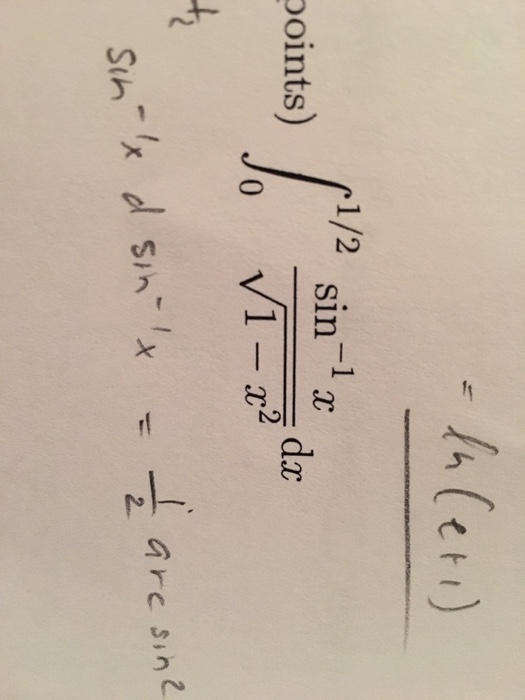 = ln(e+1)
points) ∫_0^{1/2} \frac{sin^{-1} x}{\sqrt{1 − x^2}} dx
sin^{-1}x d sin^{-1}x = \frac{1}{2} arcsin^2